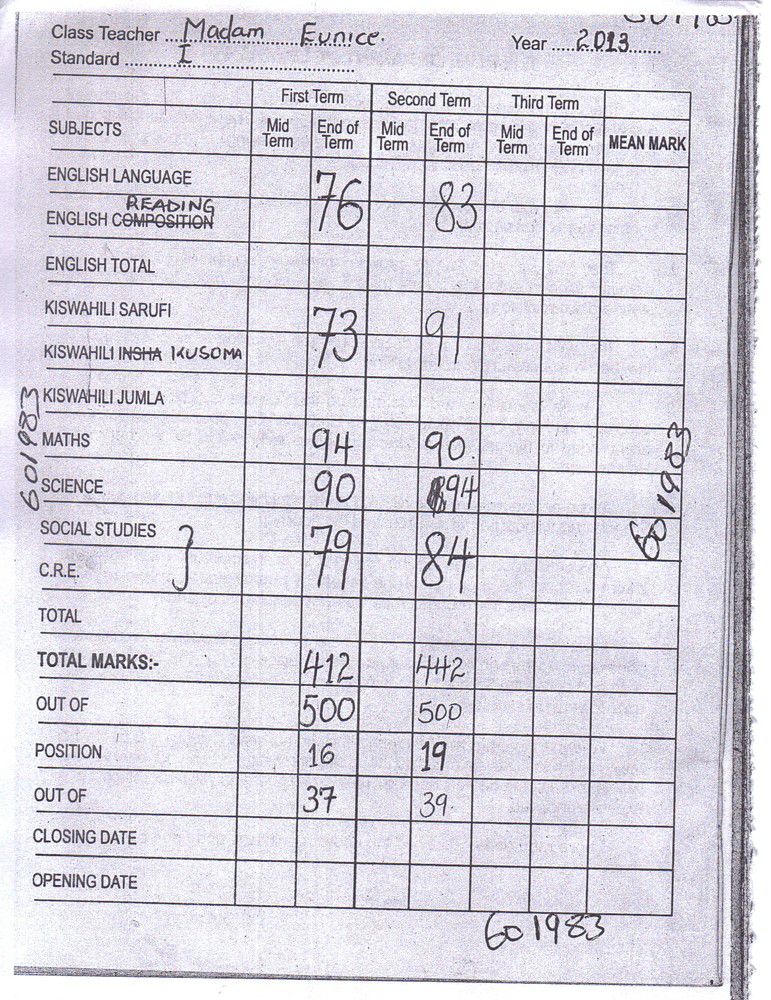 Class Teacher Madam Eunice. Year 2013
Standard I
First Term Second Term Third Term
SUBJECTS Mid Term End of Term Mid Term End of Term Mid Term End of Term MEAN MARK
ENGLISH LANGUAGE 76 83
READING
ENGLISH COMPOSITION
ENGLISH TOTAL
KISWAHILI SARUFI 73 91
KISWAHILI INSHA KUSOMA
KISWAHILI JUMLA
MATHS 94 90.
SCIENCE 90 94
SOCIAL STUDIES 79 84
C.R.E.
TOTAL
TOTAL MARKS:- 412 442
OUT OF 500 500
POSITION 16 19
OUT OF 37 39
CLOSING DATE
OPENING DATE
601983
601983
601983